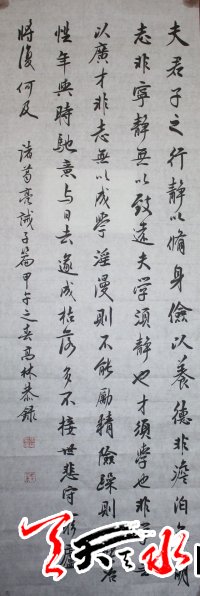 夫君子之行靜以脩身儉以養德非澹泊無以明
志非寧靜無以致遠夫学須靜也才須學也非學
以廣才非志無以成學淫漫則不能勵精險躁則
性年與時馳意与日去遂成枯落多不接世悲守窮廬
將復何及 諸葛亮誡子篇甲午之春高林恭錄